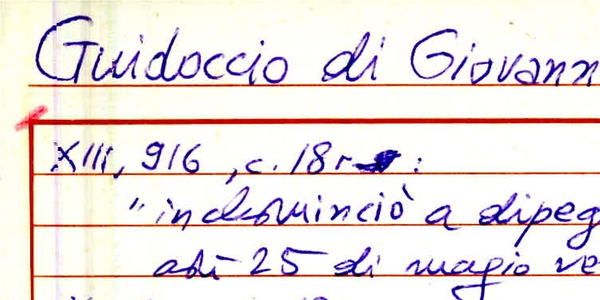 Guidoccio di Giovann
XIII, 916, c. 18r :
"inchominciò a dipeg
adì 25 di magio ve